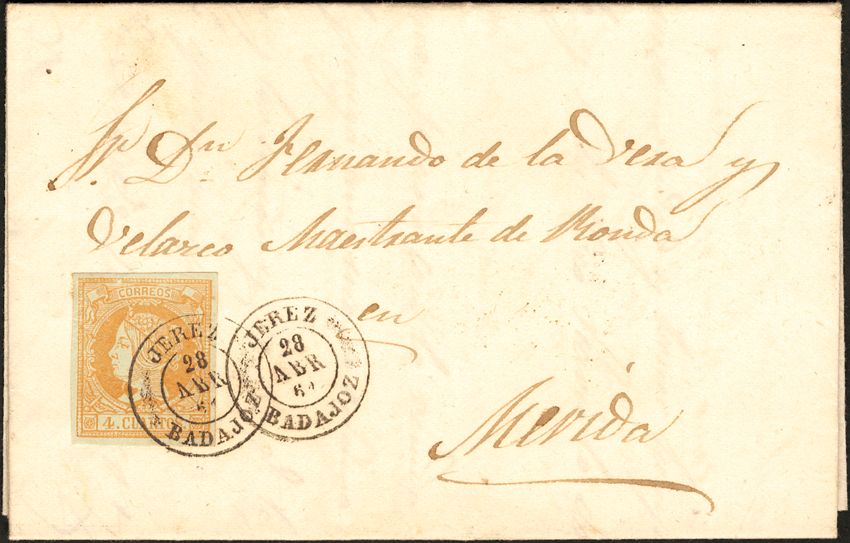 Sr. Dn Fernando de la Vera y
Velasco Maestrante de Ronda
en
Merida
CORREOS
4. CUARTOS
JEREZ
28
ABR
61
BADAJOZ
JEREZ
28
ABR
61
BADAJOZ